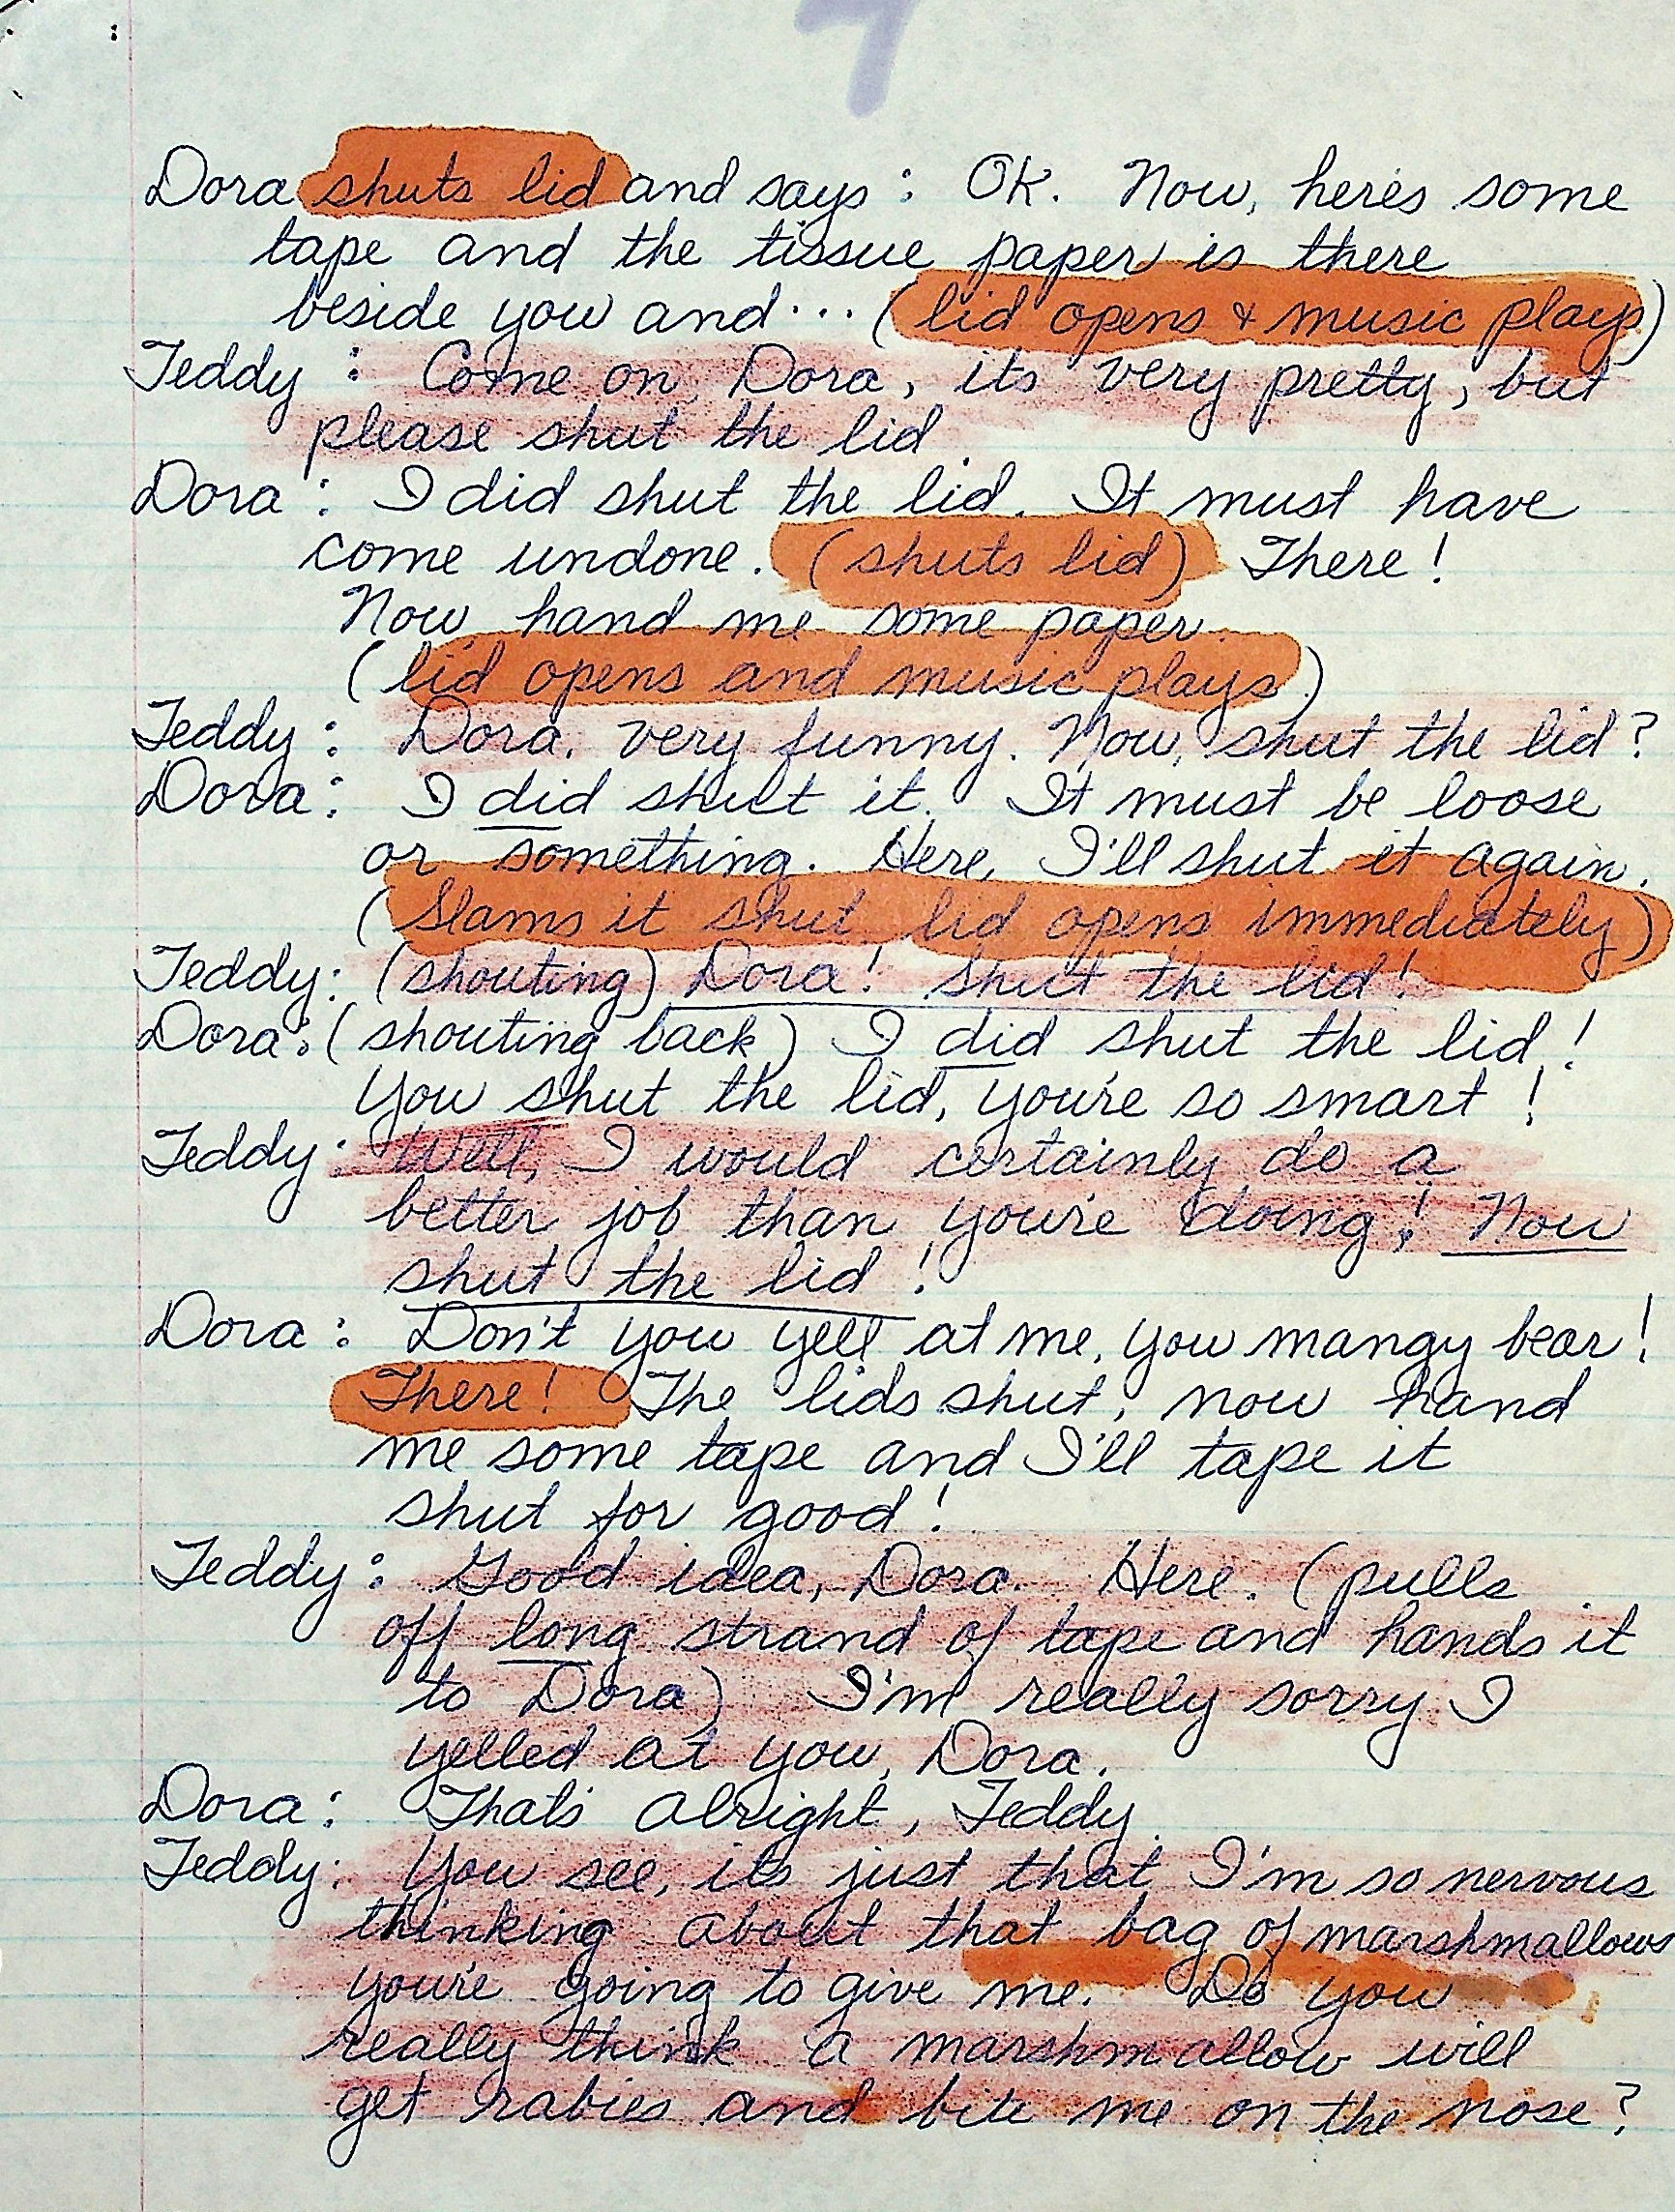 7
Dora shuts lid and says: OK. Now, here's some
tape and the tissue paper is there
beside you and... (lid opens & music plays)
Teddy: Come on, Dora, its very pretty, but
please shut the lid.
Dora: I did shut the lid. It must have
come undone. (shuts lid) There!
Now hand me some paper.
(lid opens and music plays.)
Teddy: Dora, very funny. Now, shut the lid?
Dora: I did shut it. It must be loose
or something. Here, I'll shut it again.
(Slams it shut lid opens immediately)
Teddy: (shouting) Dora! Shut the lid!
Dora: (shouting back) I did shut the lid!
You shut the lid, you're so smart!
Teddy: Well, I would certainly do a
better job than you're doing! Now
shut the lid!
Dora: Don't you yell at me, you mangy bear!
There! The lids shut, now hand
me some tape and I'll tape it
shut for good!
Teddy: Good idea, Dora. Here. (pulls
off long strand of tape and hands it
to Dora) I'm really sorry I
yelled at you, Dora.
Dora: That's alright, Teddy.
Teddy: You see, its just that I'm so nervous
thinking about that bag of marshmallows
you're going to give me. Do you
really think a marshmallow will
get rabies and bite me on the nose?